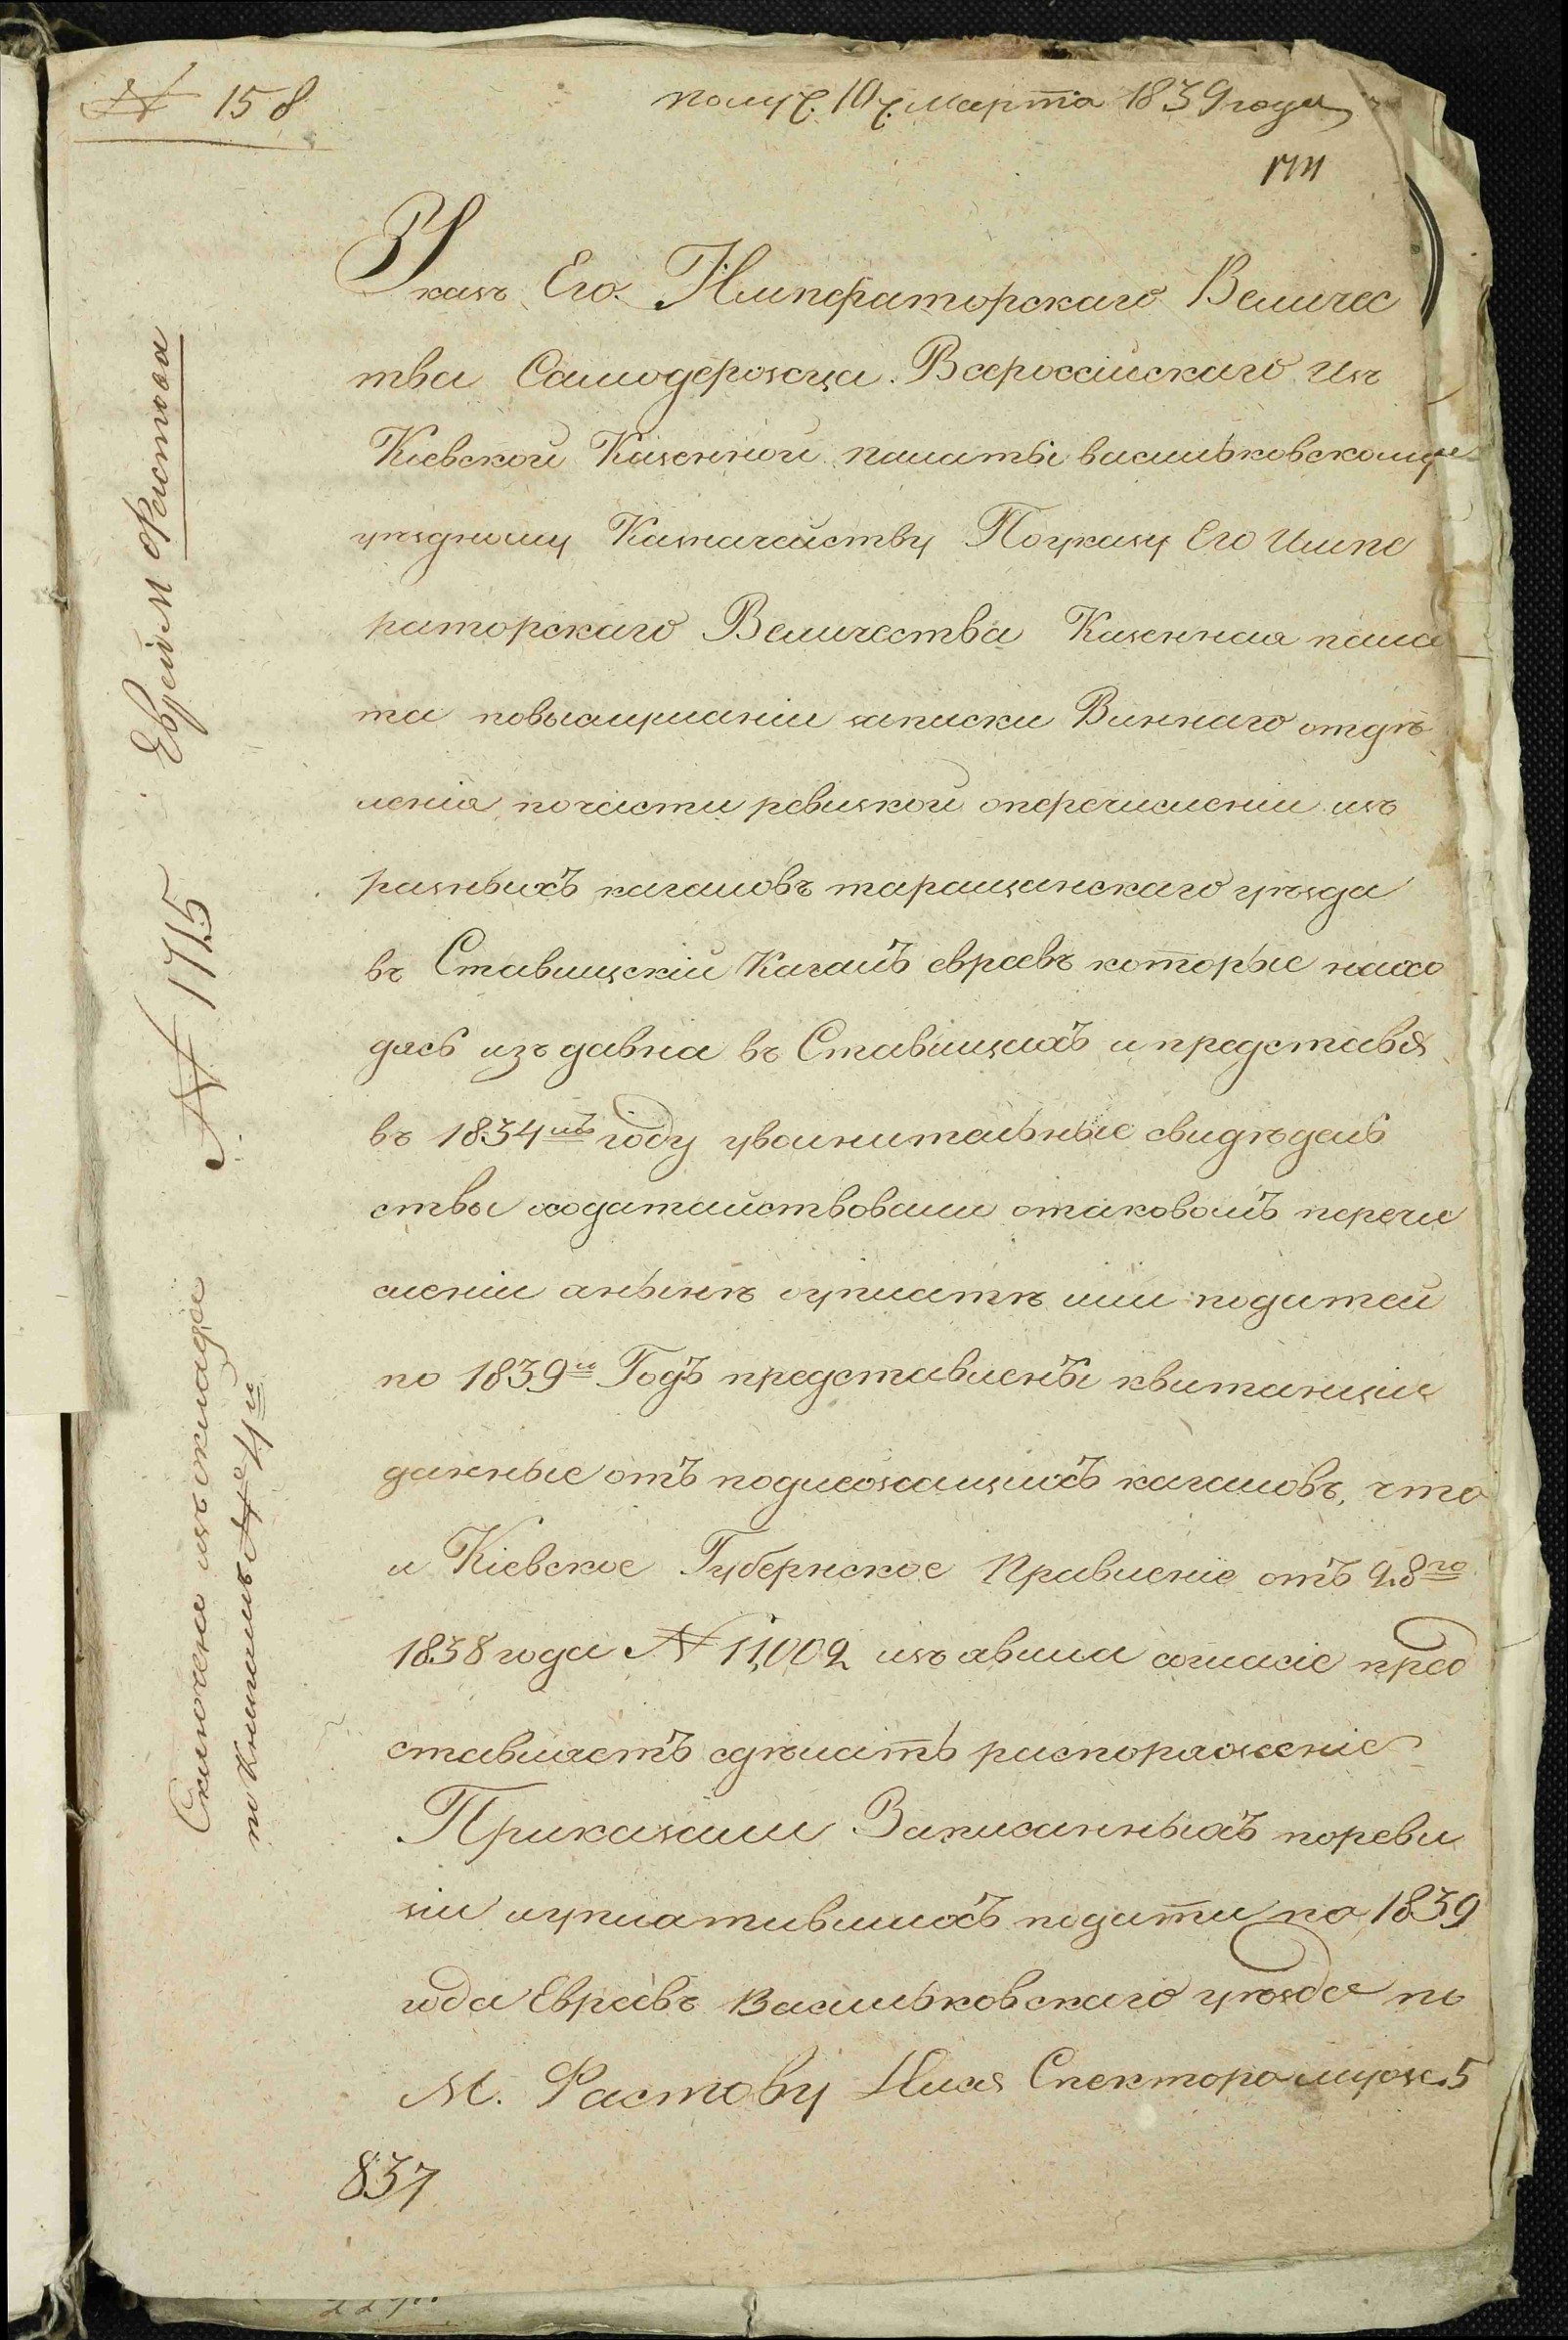 № 158
получ. 10 ч. Марта 1839 года
Указъ Его Императорскаго Величес
тва Самодержца Всероссійскаго изъ
Кіевской Казенной палаты васильковскому
уѣздному Казначейству Поуказу Его Импе
раторскаго Величества Казенная пала
та повыслушаніи записки Виннаго отдѣ
ленія почасти ревизкой оперечисленіи изъ
разныхъ кагаловъ таращанскаго уѣзда
въ Ставищскій Кагалъ евреевъ которые нахо
дясь изъ давна въ Ставищахъ и представя
въ 1834мъ году увольнительные свидѣдель
ствы ходатайствовали отаковомъ перечи
сленіи анынѣ оуплатѣ ими податей
по 1839й Годъ представлены квитанціи
данные отъ подлежащихъ кагаловъ, что
и Кіевское Губернское Правленіе отъ 28го
1838 года № 11,002 изъявила согласіе пред
ставляетъ сдѣлать распоряженіе
Приказали Записанныхъ пореви
зіи иуплатившихъ подати по 1839
года Евреевъ Васильковскаго уѣзда по
М. Фастову Спектора мужес. 5
837
Евреи М Фастова
№ 1715
Сключены изъ оклада
по Книгамъ № 4й